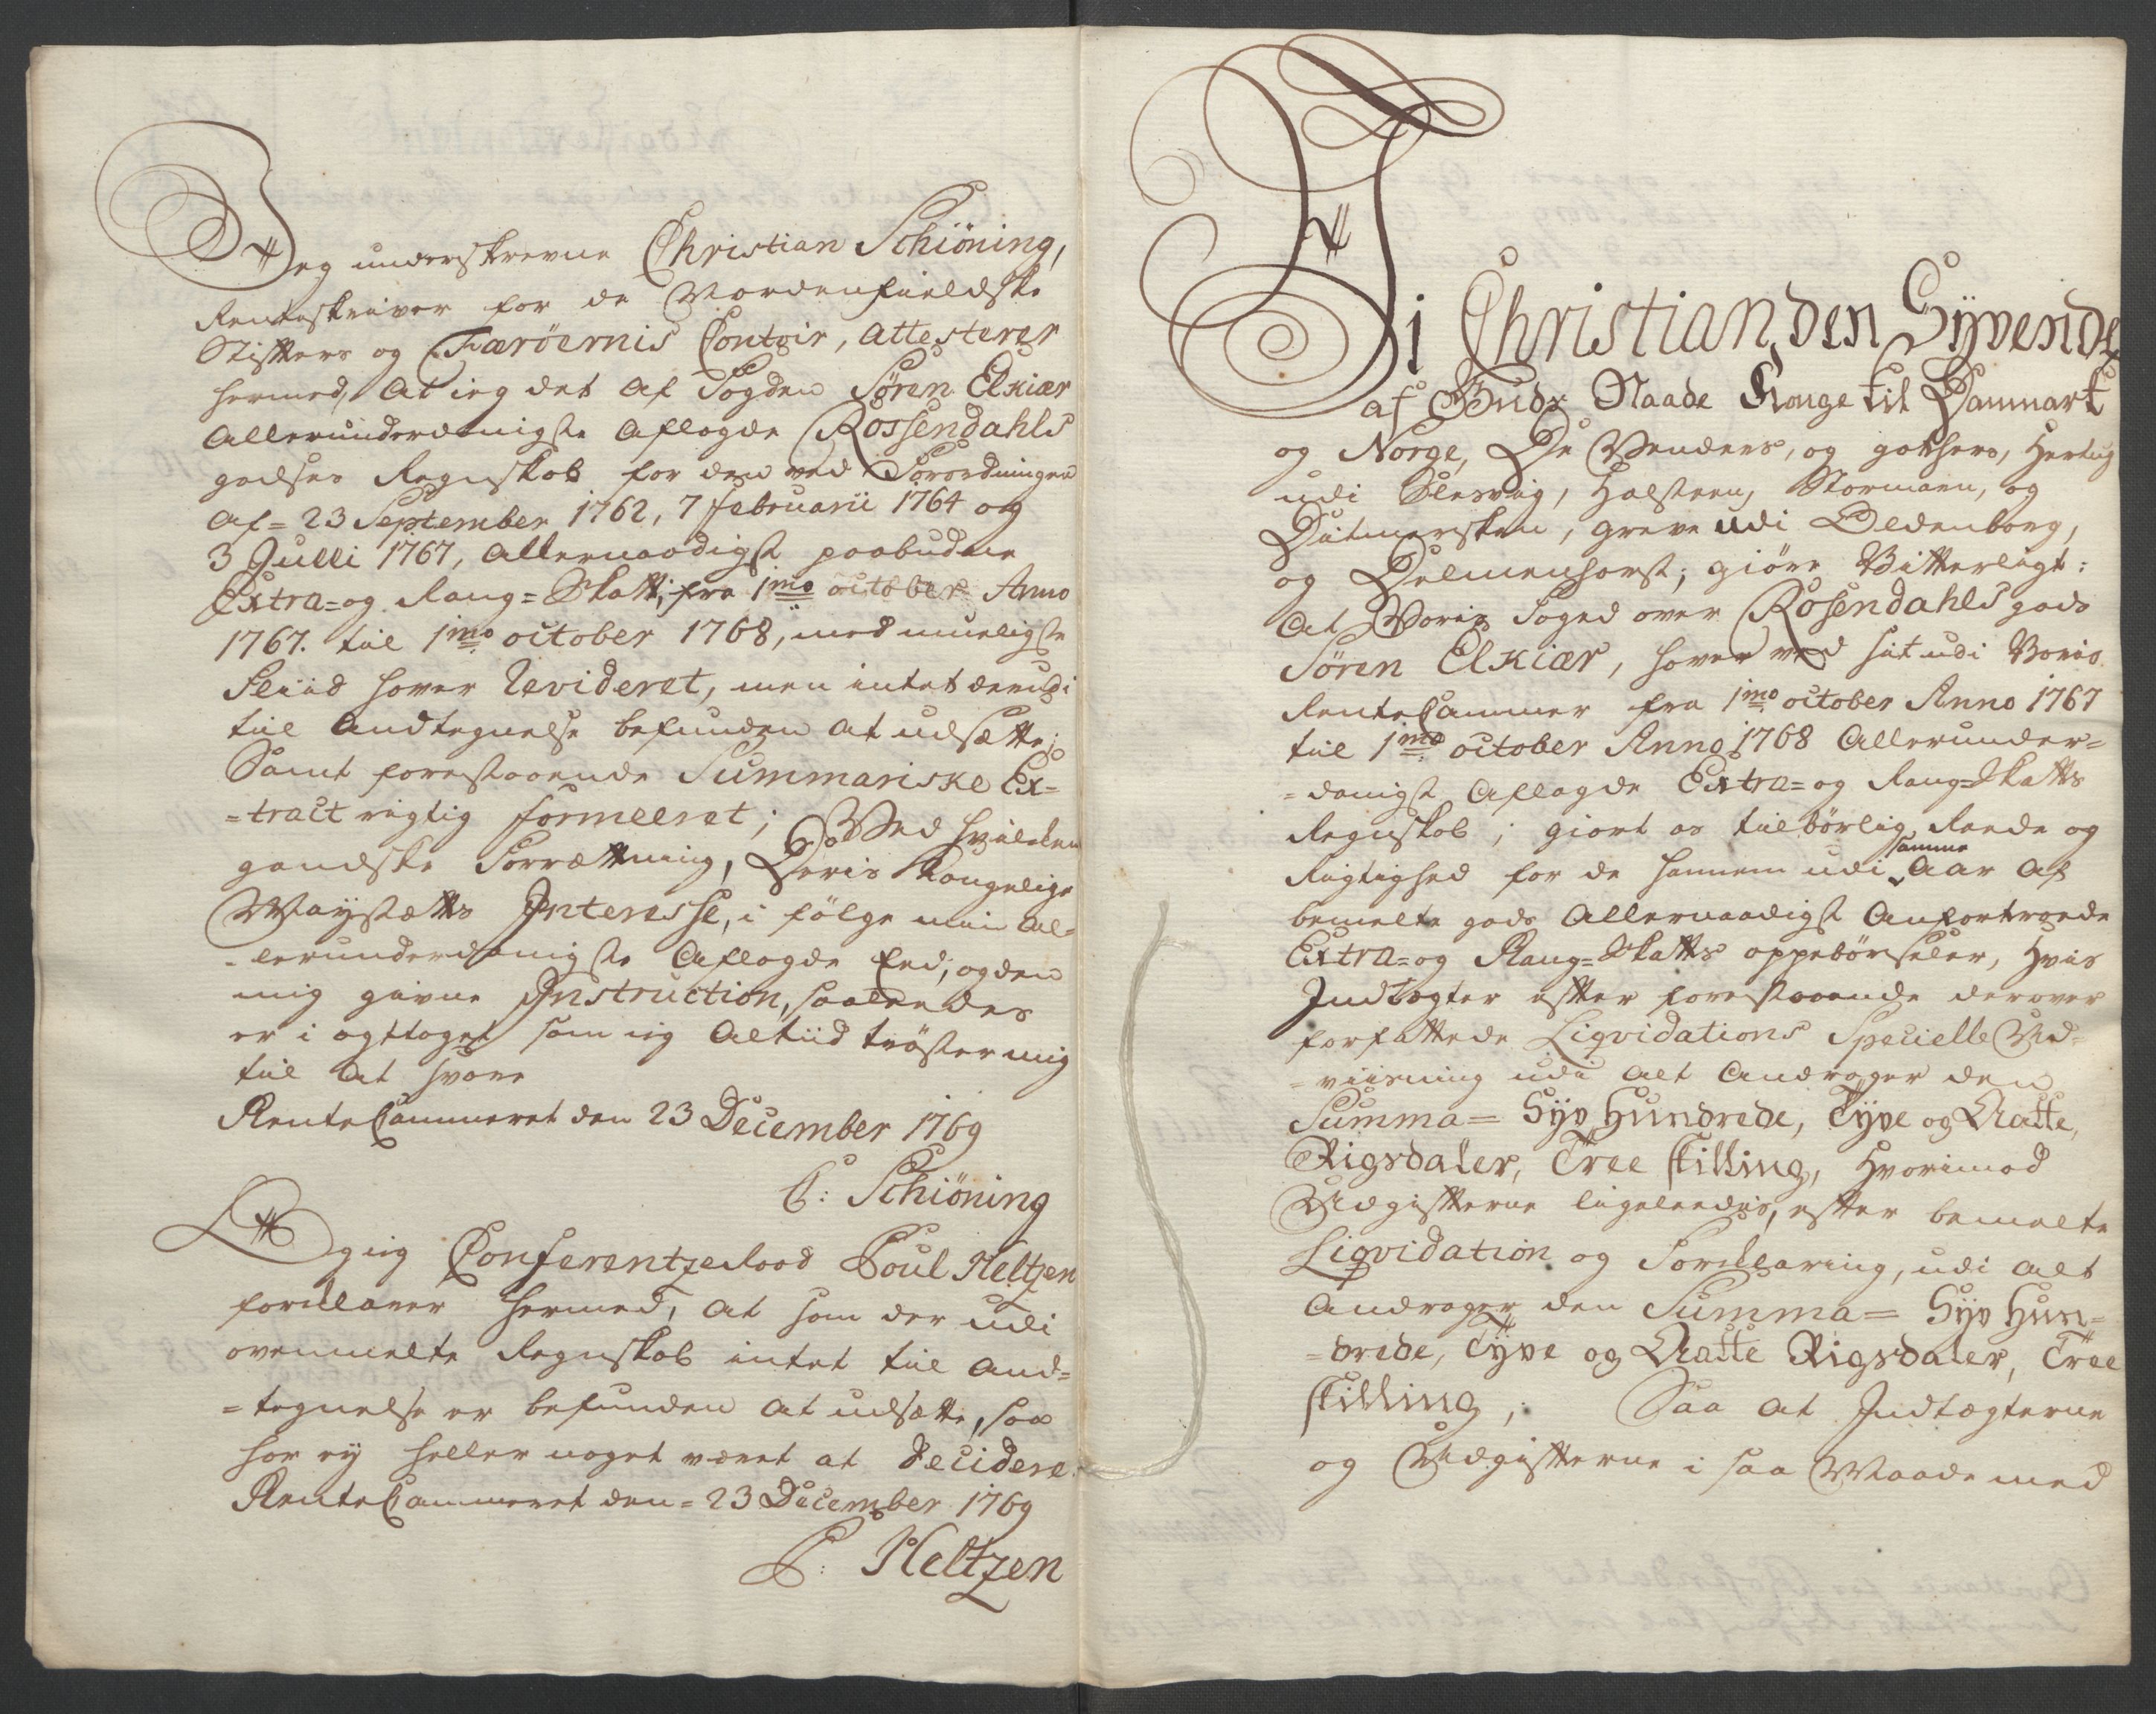 Jeg underskrevne Christian Schiöning,
Renteskriver for de Nordenfieldske
Stifters og Færöernis Contoir, attesterer
hermed, at jeg det af Fogden Sören Elkiær
allerunderdanigste aflagde Rossendahls
godses Regnskab for den ved Forordningen
af = 23 September 1762, 7 Februarii 1764 og
3 Julli 1767, allernaadigst paabudne
Extra= og Rang=Skatt, fra 1mo october Anno
1767. til 1mo october 1768, med mueligste
Fliid haver Revideret, men intet derudi
til Andtegnelse befunden at udsætte;
Samt forestaaende Summariske Ex=
=tract rigtig formeeret; Ved hvilcken
gandske Forrættning, Deris Kongelige
Mayestætts Interesse, i fölge min al=
=lerunderdanigste aflagde Eed, og den
mig givne Instruction, saaledes
er i agttaget som jeg altiid tröster mig
til at svare
RenteCammeret den 23 December 1769
C: Schiöning
Og jeg Conferentzeraad Poul Heltzen
forklarer hermed, at som der udi
ovenmelte Regnskab intet til And=
=tegnelse er befunden at udsætte, saa
har ey heller noget været at decidere.
RenteCammeret den = 23 December 1769
P: Heltzen
Vi Christian den Syvende
af Guds Naade Konge til Danmark
og Norge, De Venders, og Gothers, Hertug
udi Slesvig, Holsteen, Stormarn, og
Ditmersken, Greve udi Oldenborg,
og Delmenhorst; giöre Vitterligt:
At Voris Foged over Rosendahls gods
Sören Elkiær, haver ved sit udi Voris
RenteCammer fra 1mo october Anno 1767
til 1mo october Anno 1768 Allerunder=
=danigst Aflagde Extra= og Rang=Skatts
Regnskab; giort os tilbörlig Reede og
Rigtighed for de hannem udi samme Aar af
bemelte gods Allernaadigst Anfortroede
Extra= og Rang=Skatts oppebörseler, Hvis
Indtægter effter forestaaende derover
forfattede Liqvidations Specielle Ud=
=viisning udi alt Andrager den
Summa= Syv Hundrede, Tyve og Aatte,
Rigsdaler, Tree skilling, Hvorimod
Udgiffterne ligeleedes, effter bemelte
Liqvidation og Forklaring, udi alt
Andrager den Summa= Syv Hun=
=drede, Tyve og Aatte Rigsdaler, Tree
skilling; Saa at Indtægterne
og Udgiffterne i saa Maade med